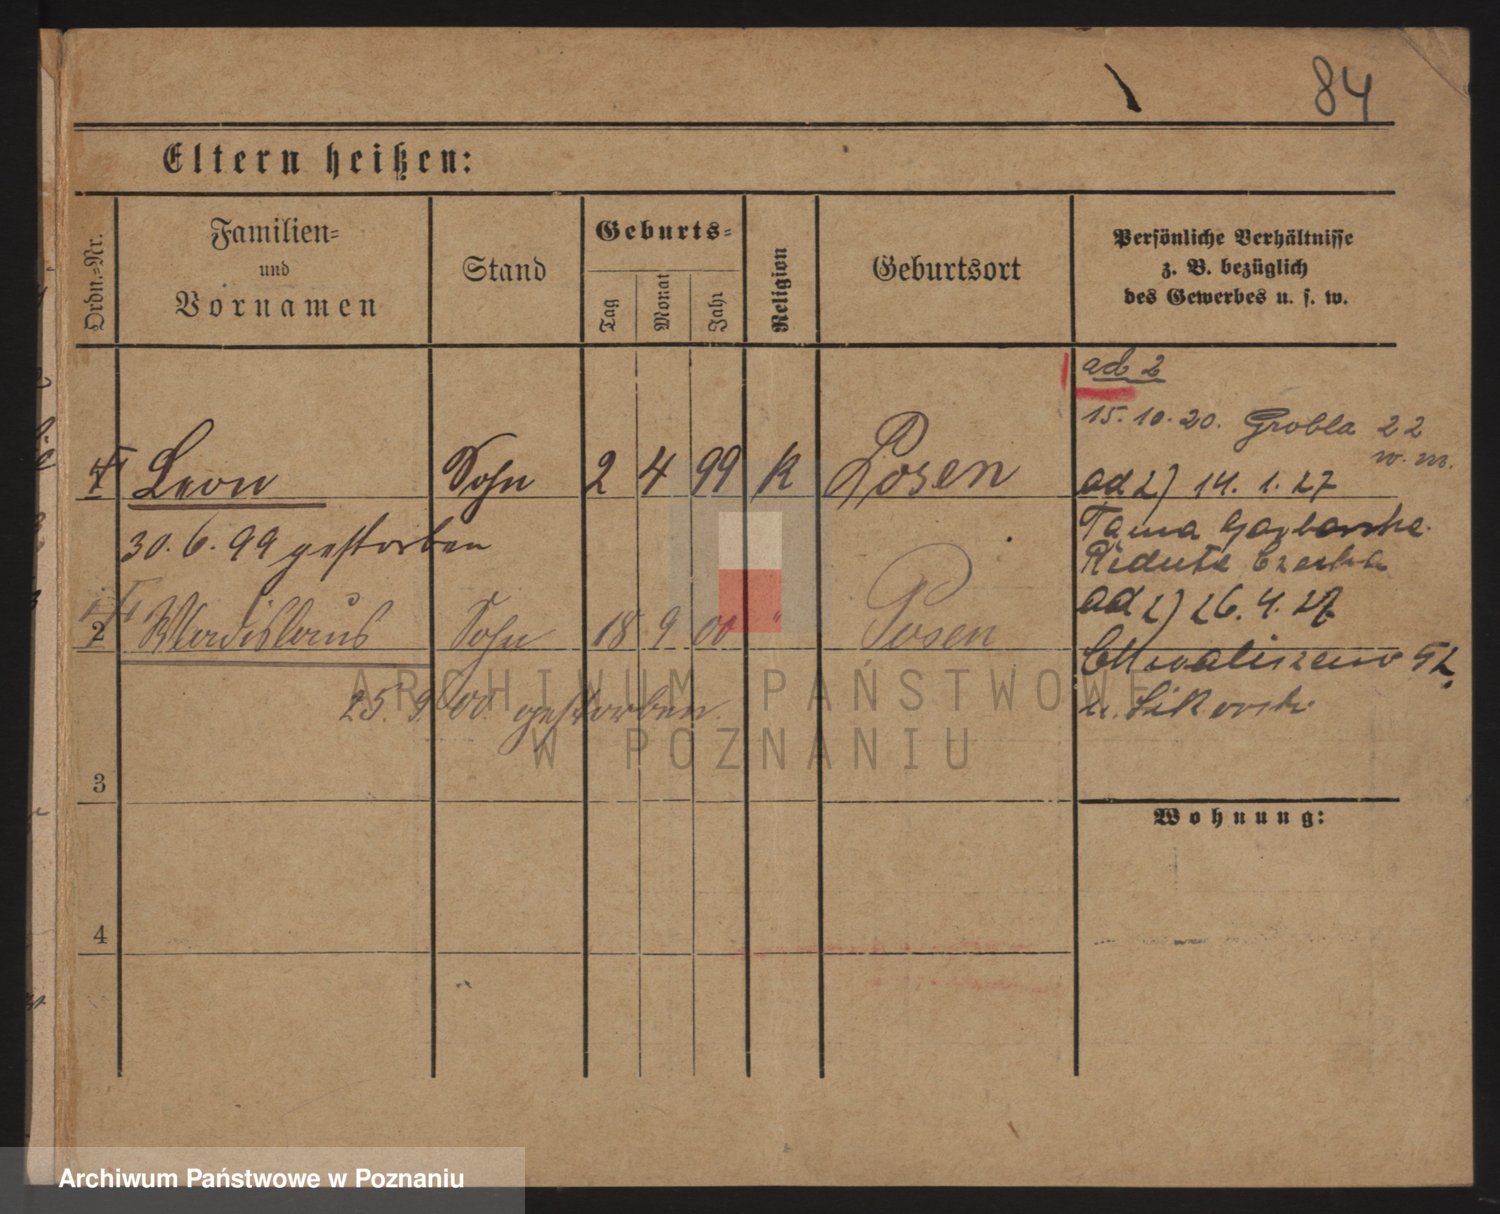 84
Eltern heißen:
Ordn.-Nr.
Familien-
und
Vornamen
Stand
Geburts-
Tag
Monat
Jahr
Religion
Geburtsort
Persönliche Verhältnisse
z. B. bezüglich
des Gewerbes u. s. w.
ad 2
15.10.20. Grobla 22
w. m.
1 Leon Sohn 2 4 99 K Posen
ad 2) 14. 1. 27
30.6.99 gestorben
Tama Garbarska
Reduta
2 Wladislaus Sohn 18 9 00 " Posen
ad 2) 26.4.27
25.9.00 gestorben.
u.
3
Wohnung:
4
ARCHIWUM PAŃSTWOWE
W POZNANIU
Archiwum Państwowe w Poznaniu